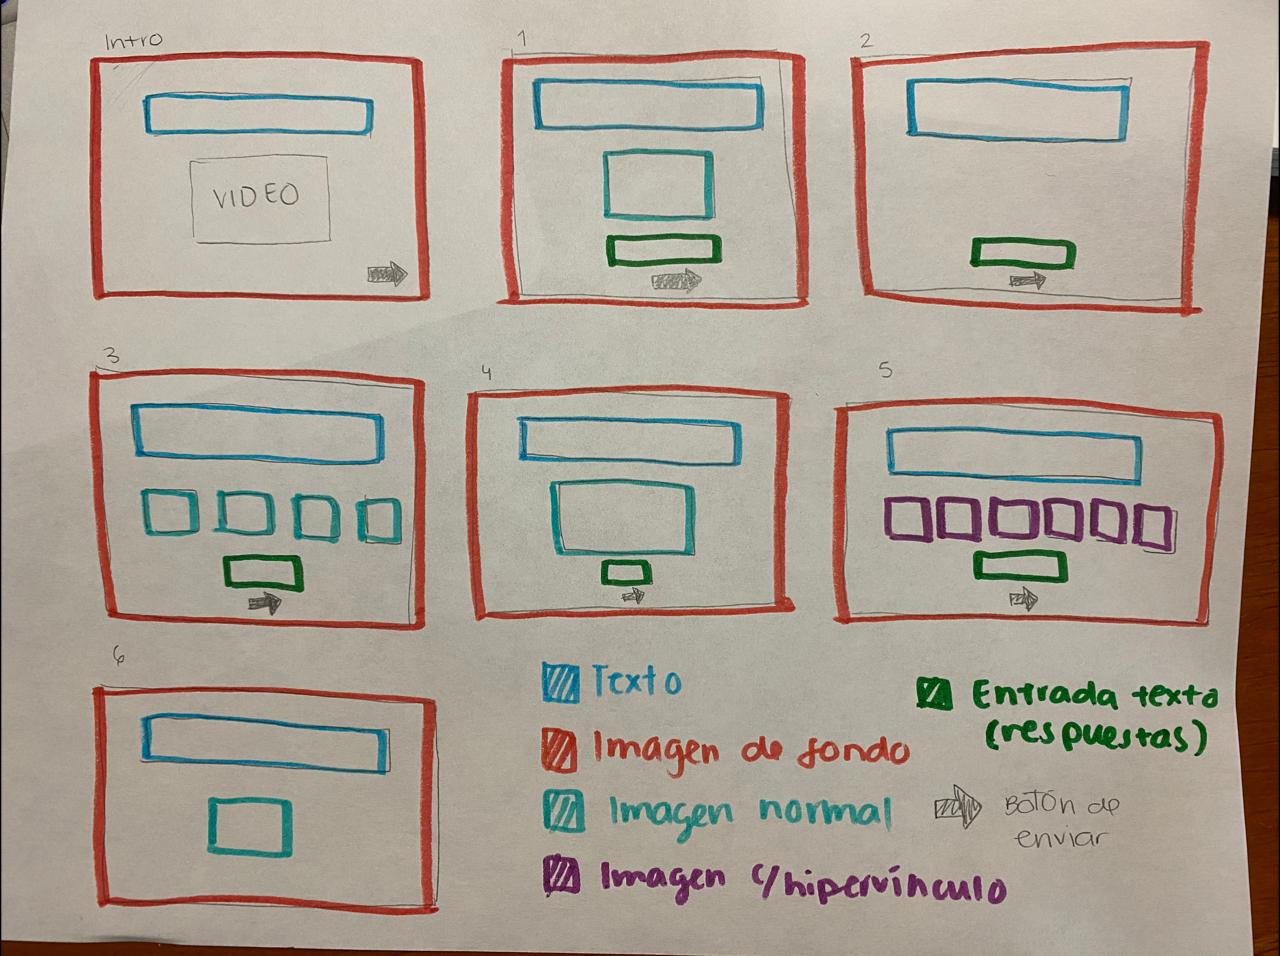 Intro
1
2
VIDEO
3
4
5
6
Texto
Imagen de fondo
Imagen normal
Imagen c/hipervínculo
Entrada texto
(respuestas)
Botón de
enviar